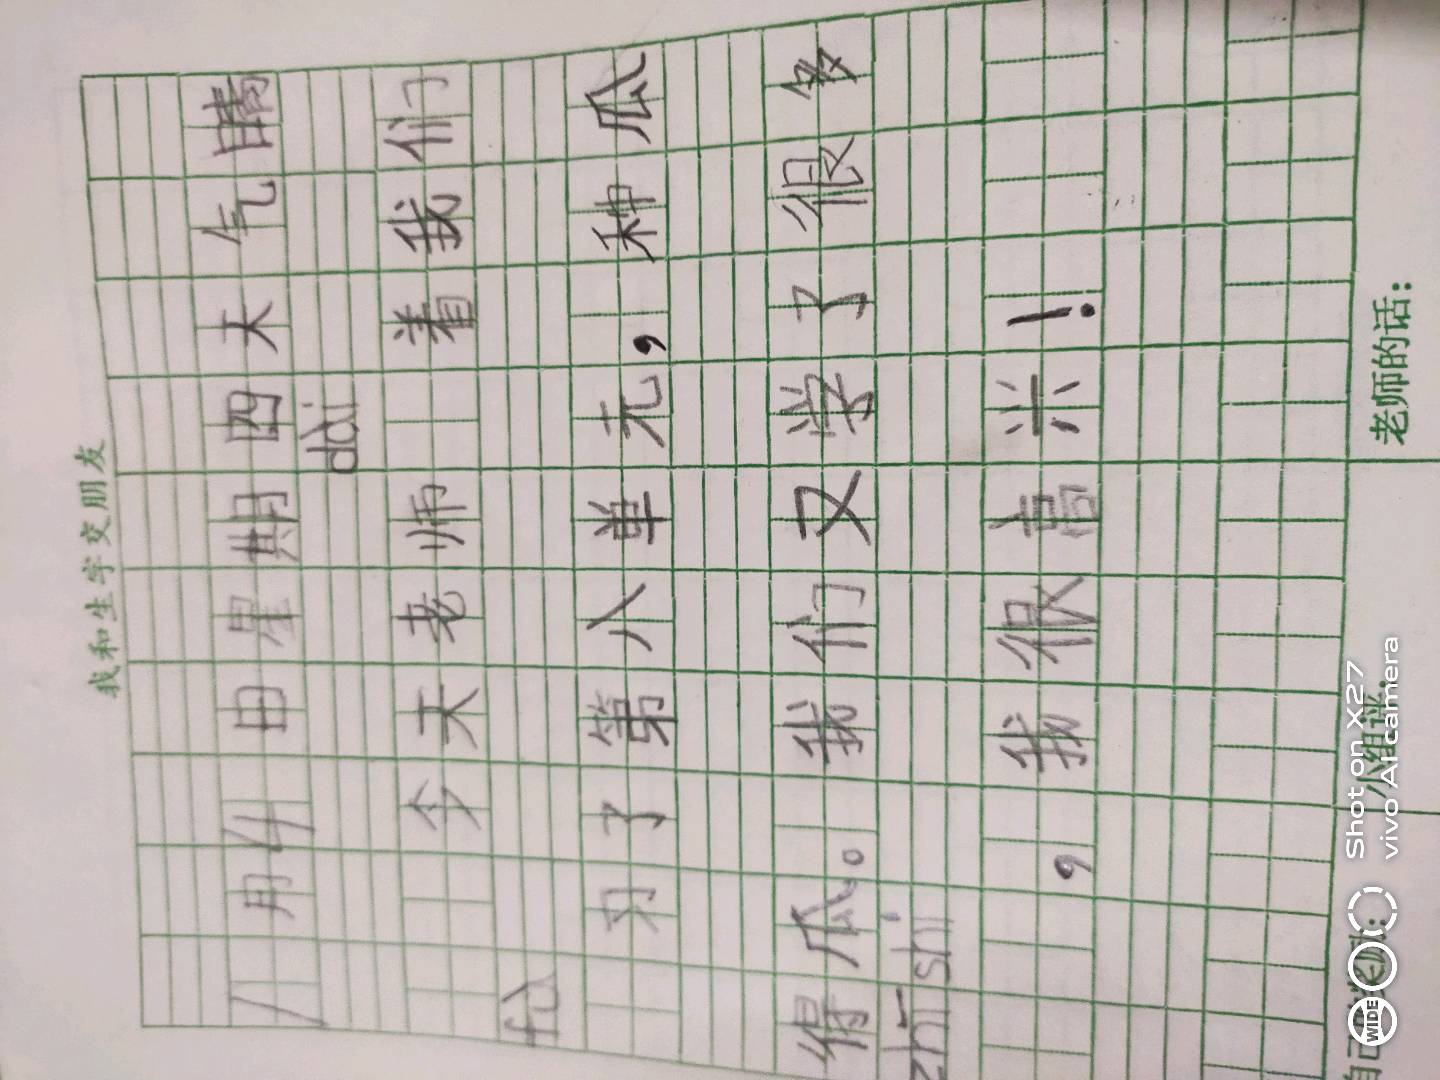 我和生字交朋友
11月4日星期四天气晴
dài
今天老师 着我们
fù
习了第八单元，种瓜
得瓜。我们又学了很多
zhī shi
，我很高兴！
老师的话：
WIDE
Shot on X27
vivo AI camera